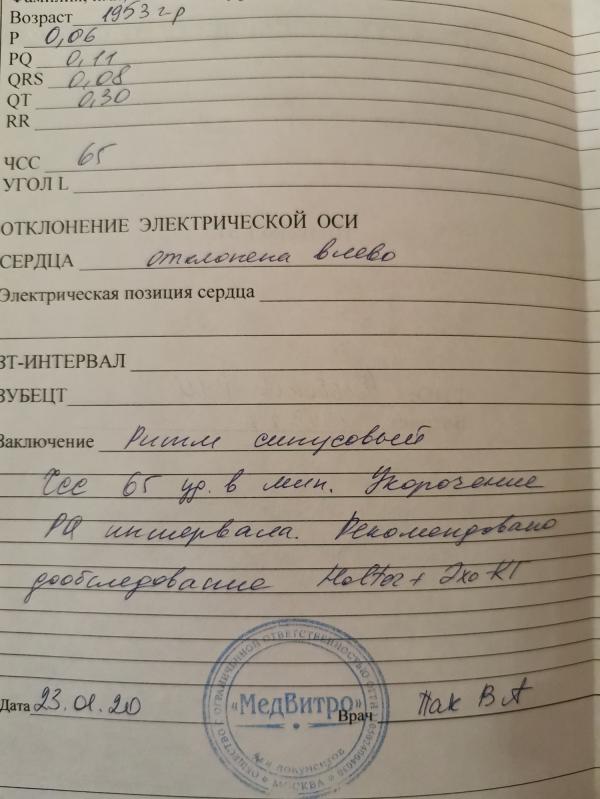 Возраст 1953 г-р
P 0,06
PQ 0,11
QRS 0,08
QT 0,30
RR
ЧСС 65
УГОЛ L
ОТКЛОНЕНИЕ ЭЛЕКТРИЧЕСКОЙ ОСИ
СЕРДЦА отклонена влево
Электрическая позиция сердца
ЗТ-ИНТЕРВАЛ
ЗУБЕЦТ
Заключение Ритм синусовый
Чсс 65 уд. в мин. Укорочение
PQ интервала. Рекомендовано
дообследование Holter + Эхо-КГ
ОБЩЕСТВО С ОГРАНИЧЕННОЙ ОТВЕТСТВЕННОСТЬЮ
«МедВитро»
Для документов
МОСКВА
Дата 23.01.20 Врач Пак В А